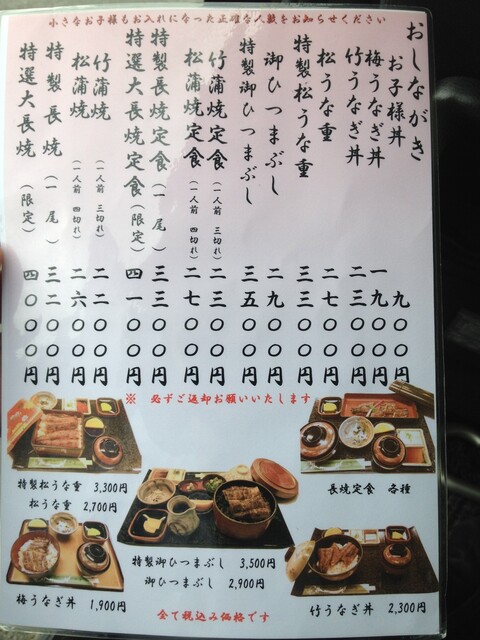 小さなお子様もお入れになった正確な人数をお知らせください
おしながき
お子様丼 九〇〇円
梅うなぎ丼 一九〇〇円
竹うなぎ丼 二三〇〇円
松うな重 二七〇〇円
特製松うな重 三三〇〇円
御ひつまぶし 二九〇〇円
特製御ひつまぶし 三五〇〇円
竹蒲焼定食(一人前 三切れ) 二三〇〇円
松蒲焼定食(一人前 四切れ) 二七〇〇円
特製長焼定食(一尾) 三三〇〇円
特選大長焼定食(限定) 四一〇〇円
竹蒲焼(一人前 三切れ) 二二〇〇円
松蒲焼(一人前 四切れ) 二六〇〇円
特製長焼(一尾) 三二〇〇円
特選大長焼(限定) 四〇〇〇円
※ 必ずご返却お願いいたします
特製松うな重 3,300円
松うな重 2,700円
長焼定食 各種
特製御ひつまぶし 3,500円
御ひつまぶし 2,900円
梅うなぎ丼 1,900円
竹うなぎ丼 2,300円
全て税込み価格です